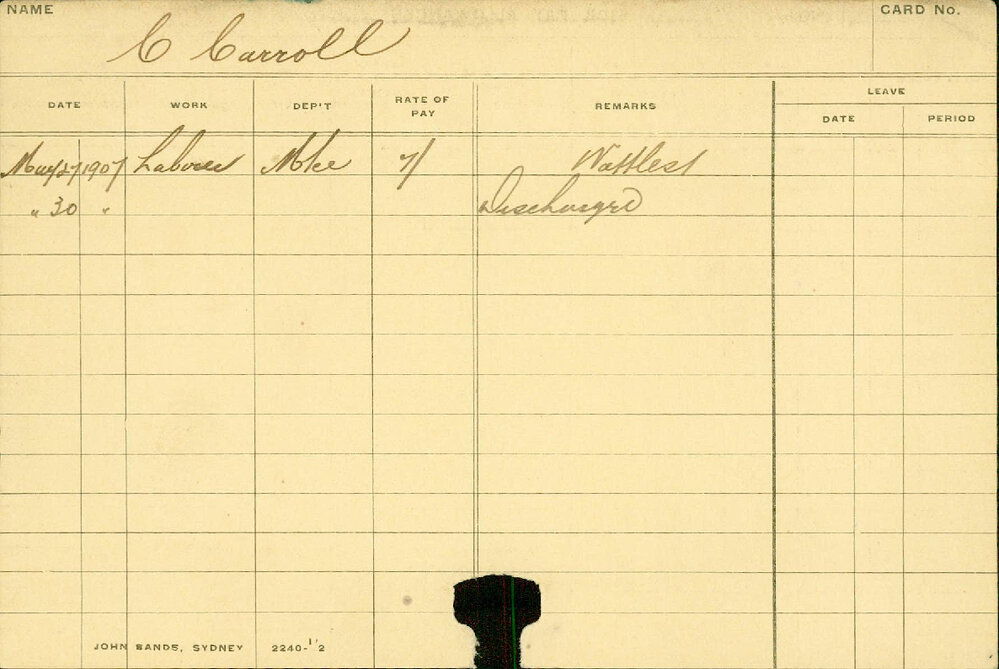 NAME
CARD No.
C Carroll
DATE
WORK
DEP'T
RATE OF PAY
REMARKS
LEAVE
DATE
PERIOD
May 27 1907 Laborer Mtce 7/ Wattlest
" 30 " Discharged
JOHN SANDS, SYDNEY 2240-1'2